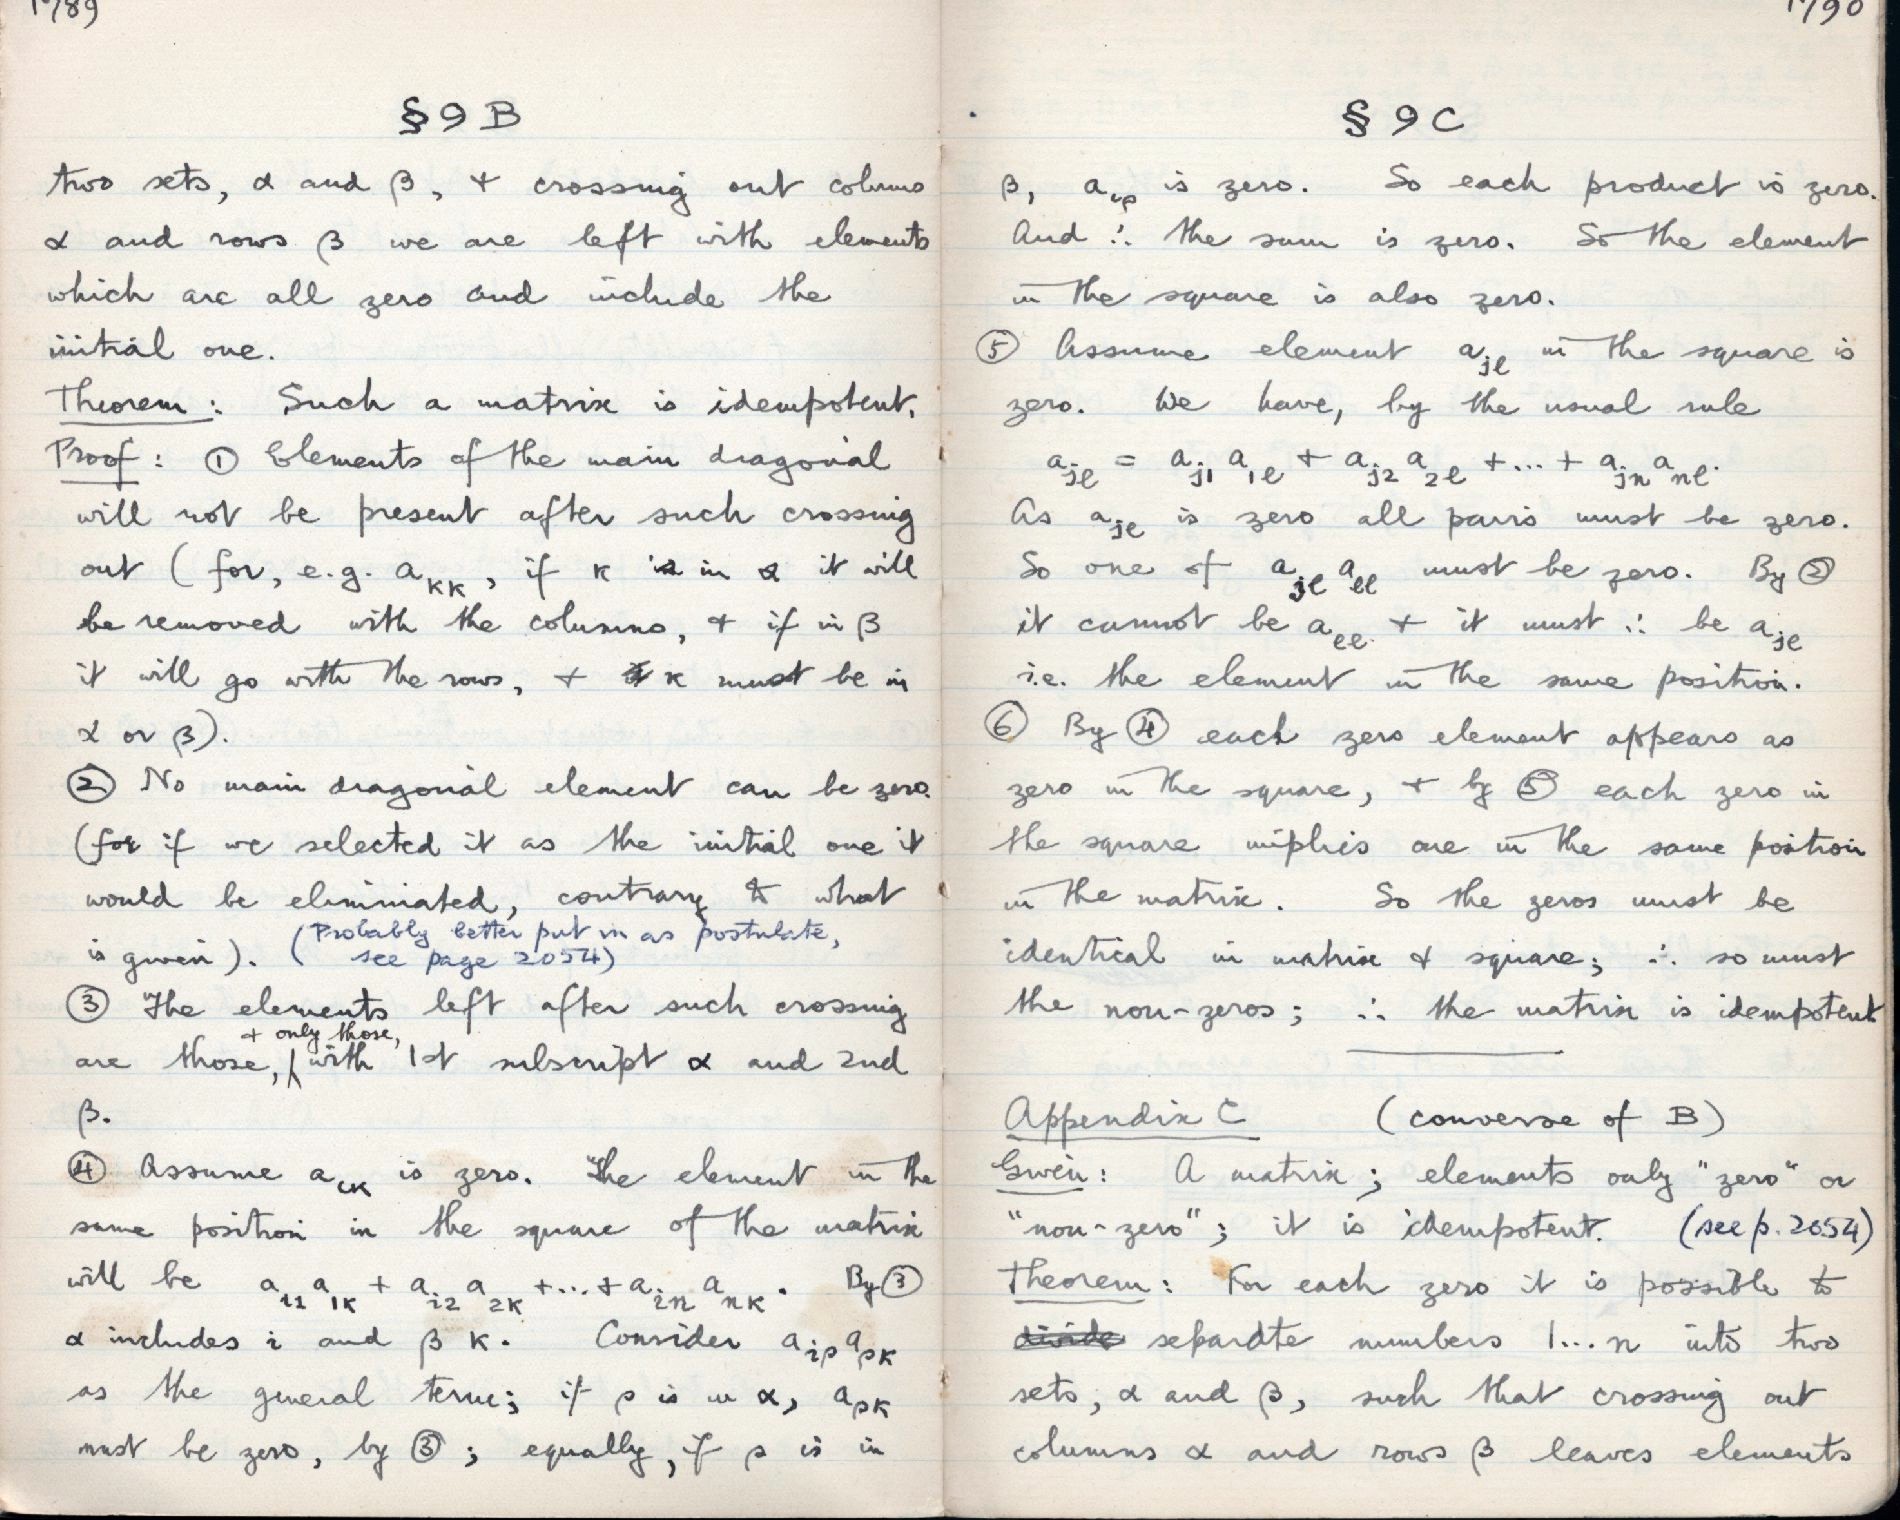 1789
§9B
two sets, α and β, + crossing out columns
α and rows β we are left with elements
which are all zero and include the
initial one.
Theorem: Such a matrix is idempotent.
Proof: ① Elements of the main diagonal
will not be present after such crossing
out (for, e.g. a_KK, if K is in α it will
be removed with the columns, + if in β
it will go with the rows, + K must be in
α or β).
② No main diagonal element can be zero.
(for if we selected it as the initial one it
would be eliminated, contrary to what
is given). (Probably better put in as postulate,
see page 2054)
③ The elements left after such crossing
+ only those,
are those, with 1st subscript α and 2nd
β.
④ Assume a_iK is zero. The element in the
same position in the square of the matrix
will be a_i1 a_1K + a_i2 a_2K + ... + a_in a_nK. By ③
α includes i and β K. Consider a_iρ a_ρK
as the general term; if ρ is in α, a_ρK
must be zero, by ③; equally, if ρ is in
1790
§9C
β, a_iρ is zero. So each product is zero.
And ∴ the sum is zero. So the element
in the square is also zero.
⑤ Assume element a_jl in the square is
zero. We have, by the usual rule
a_jl = a_j1 a_1l + a_j2 a_2l + ... + a_jn a_nl.
As a_jl is zero all pairs must be zero.
So one of a_jl a_ll must be zero. By ②
it cannot be a_ll + it must ∴ be a_jl
i.e. the element in the same position.
⑥ By ④ each zero element appears as
zero in the square, + by ⑤ each zero in
the square implies one in the same position
in the matrix. So the zeros must be
identical in matrix + square; ∴ so must
the non-zeros; ∴ the matrix is idempotent
Appendix C (converse of B)
Given: A matrix; elements only "zero" or
"non-zero"; it is idempotent. (see p. 2054)
Theorem: For each zero it is possible to
divide separate numbers 1...n into two
sets, α and β, such that crossing out
columns α and rows β leaves elements